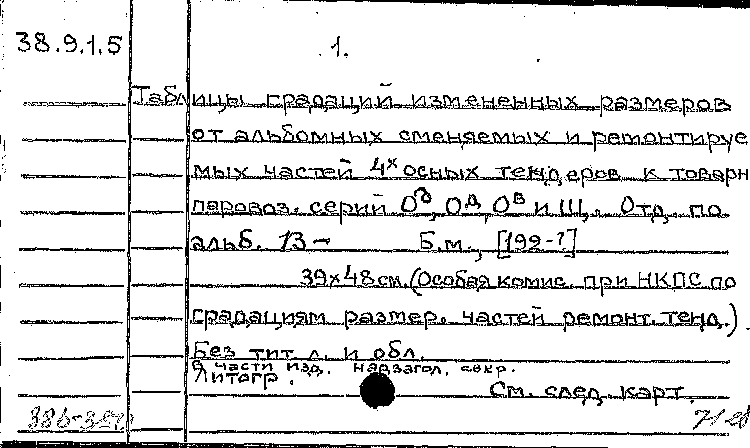 38.9.1.5
1.
Таблицы градаций измененных размеров
от альбомных сменяемых и ремонтируе
мых частей 4х осных тендеров к товарн
паровоз. серий Об, Од, Ов и Щ,. Отд. по
альб. 13- Б.м., [192-?]
39х48 см. (Особая комис. при НКПС по
градациям размер. частей ремонт. тенд.).
Без тит л. и обл.
В части изд. надзагол. сокр.
Литогр.
См. след. карт.